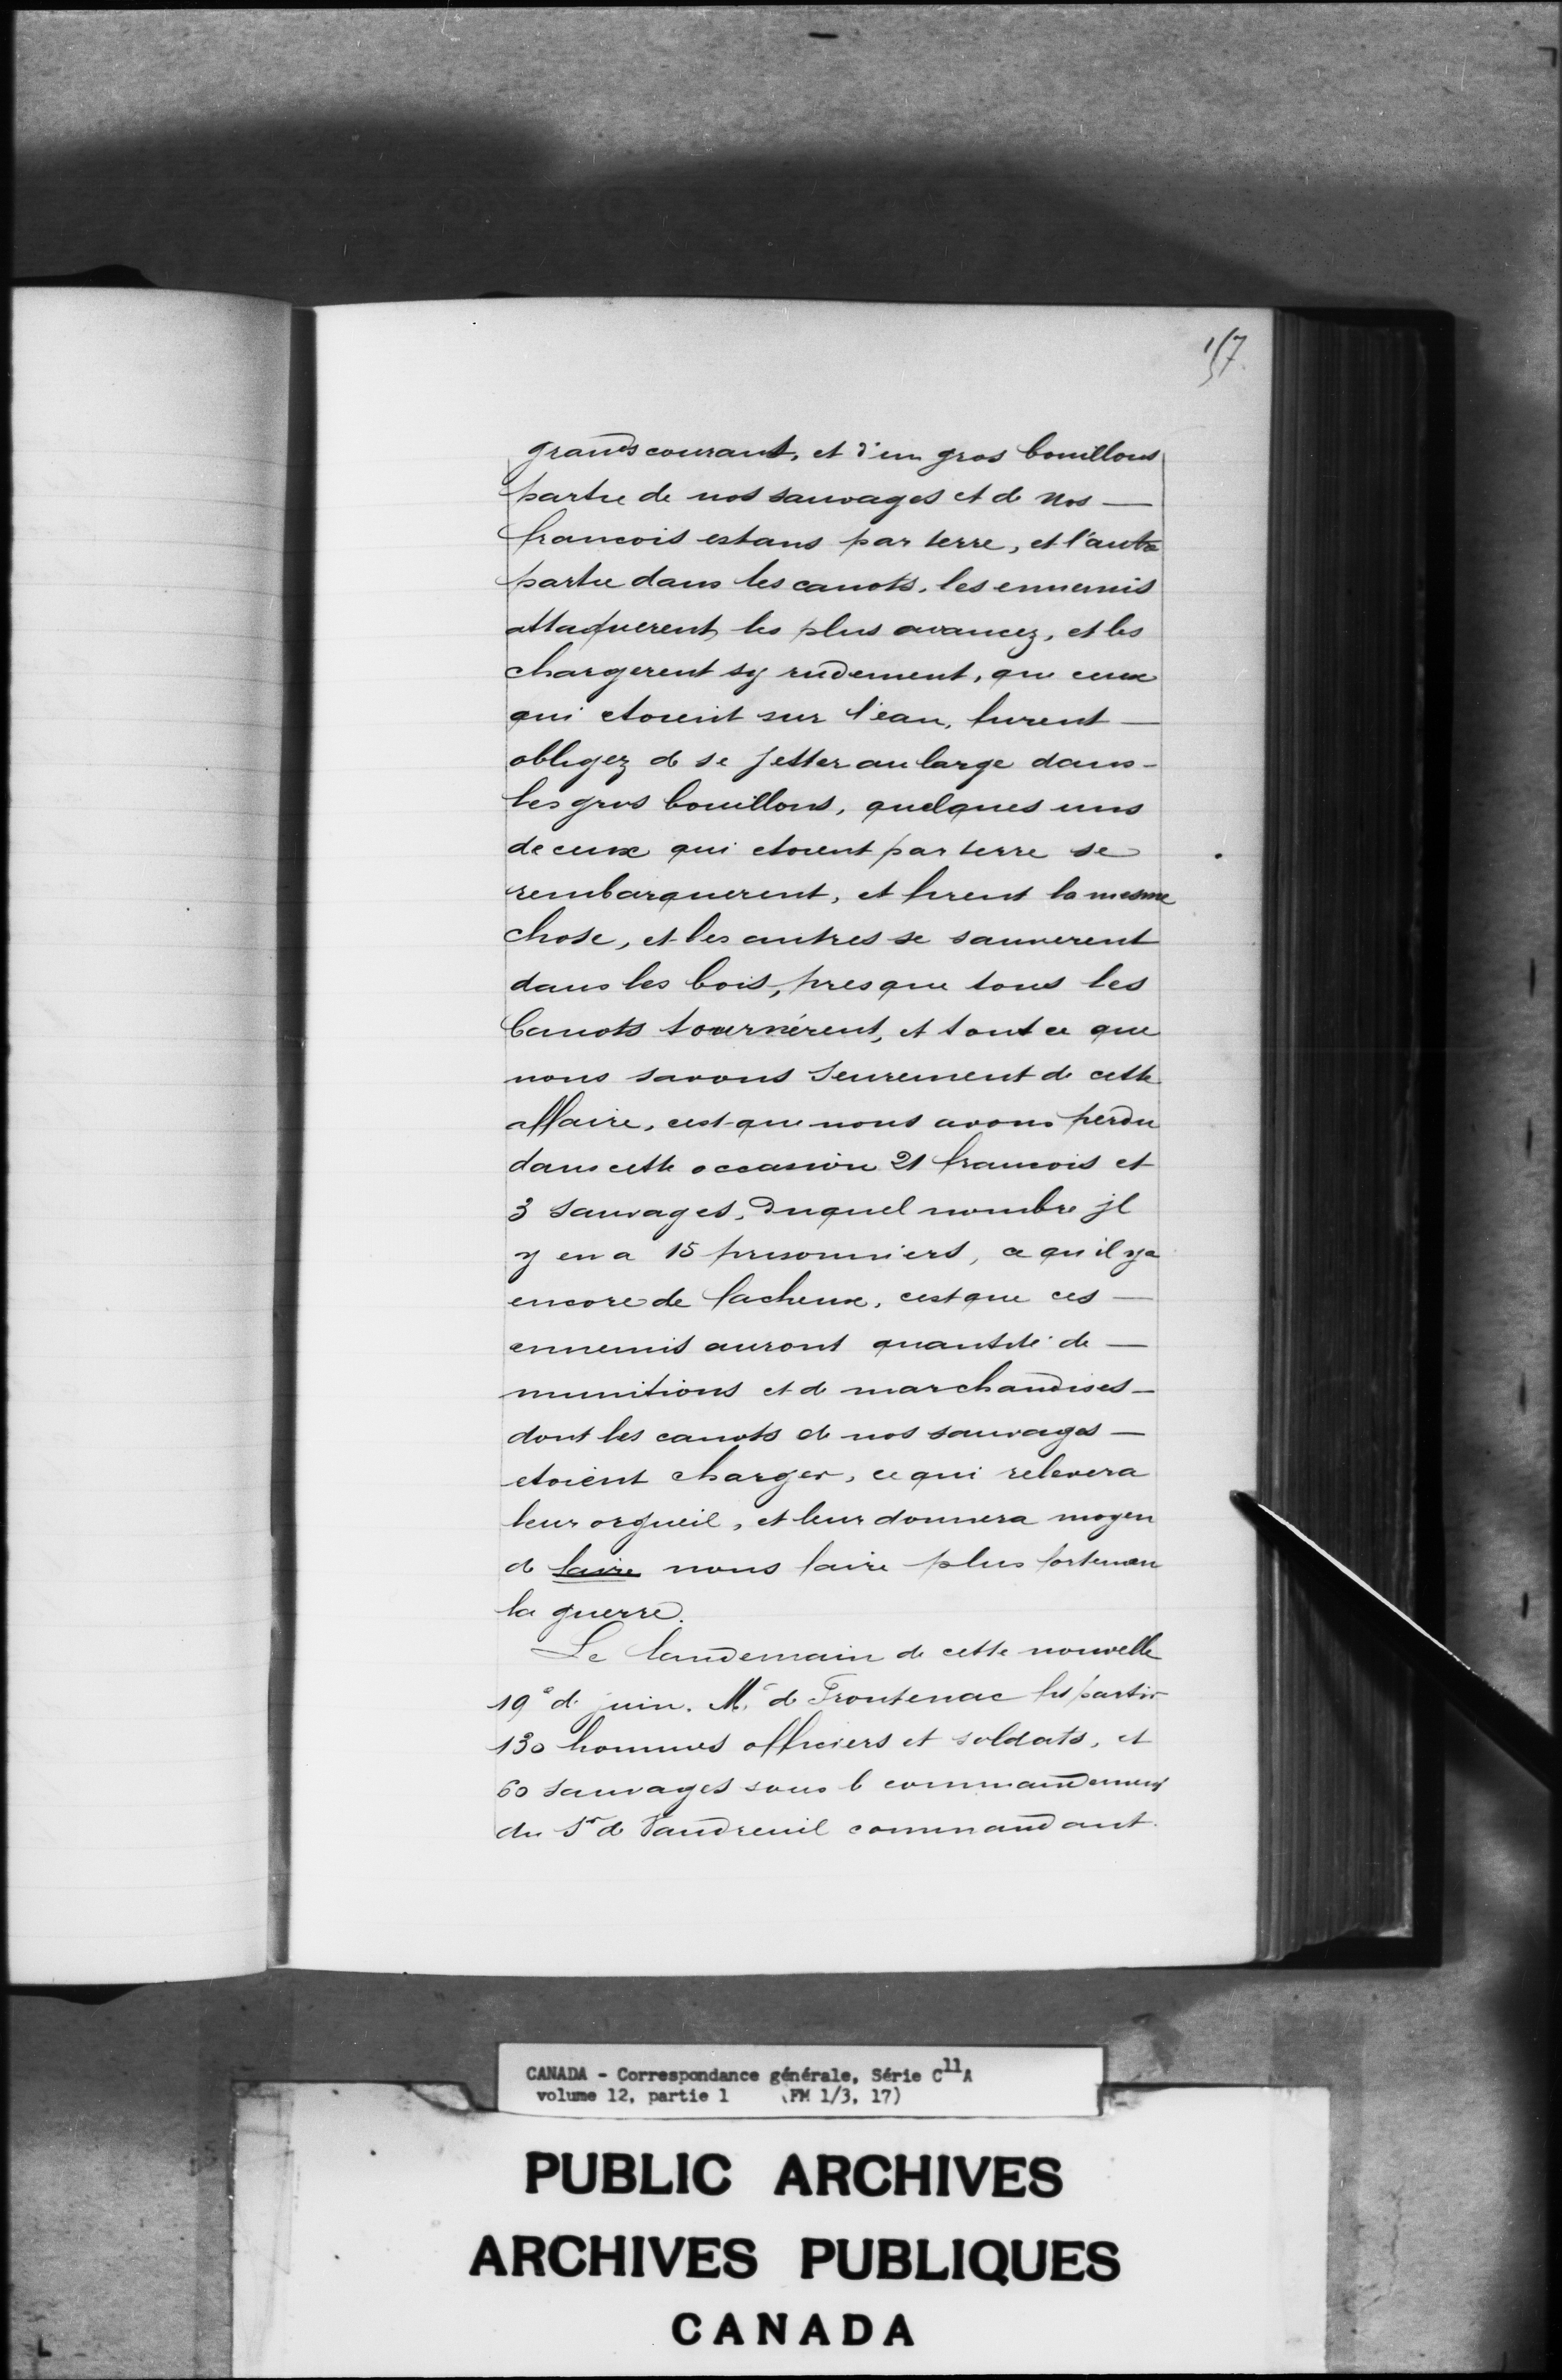 157.
grands courant, et d'un gros bouillons
partie de nos sauvages et de nos —
francois estans par terre, et l'autre
partie dans les canots, les ennemis
attaquerent les plus avancez, et les
chargerent sy rudement, que ceux
qui etoient sur l'eau, furent —
obligez de se jetter au large dans —
les gros bouillons, quelques uns
de ceux qui etoient par terre se
rembarquerent, et firent la mesme
chose, et les autres se sauverent
dans les bois, presque tous les
Canots tournérent, et tout ce que
nous savons seurement de cette
affaire, cest que nous avons perdu
dans cette occasion 21 francois et
3 sauvages, duquel nombre jl
y en a 15 prisonniers, ce qu'il y a
encore de facheux, cest que ces —
ennemis auront quantité de —
munitions et de marchandises —
dont les canots de nos sauvages —
etoient chargez, ce qui relevera
leur orgueil, et leur donnera moyen
de faire nous faire plus fortemen
la guerre.
Le landemain de cette nouvelle
19e de juin. Mr de Frontenac fit partir
130 hommes officiers et soldats, et
60 sauvages sous le commandement
du Sr de Vaudreuil commandant.
CANADA - Correspondance générale, Série C11A
volume 12, partie 1 (FM 1/3, 17)
PUBLIC ARCHIVES
ARCHIVES PUBLIQUES
CANADA